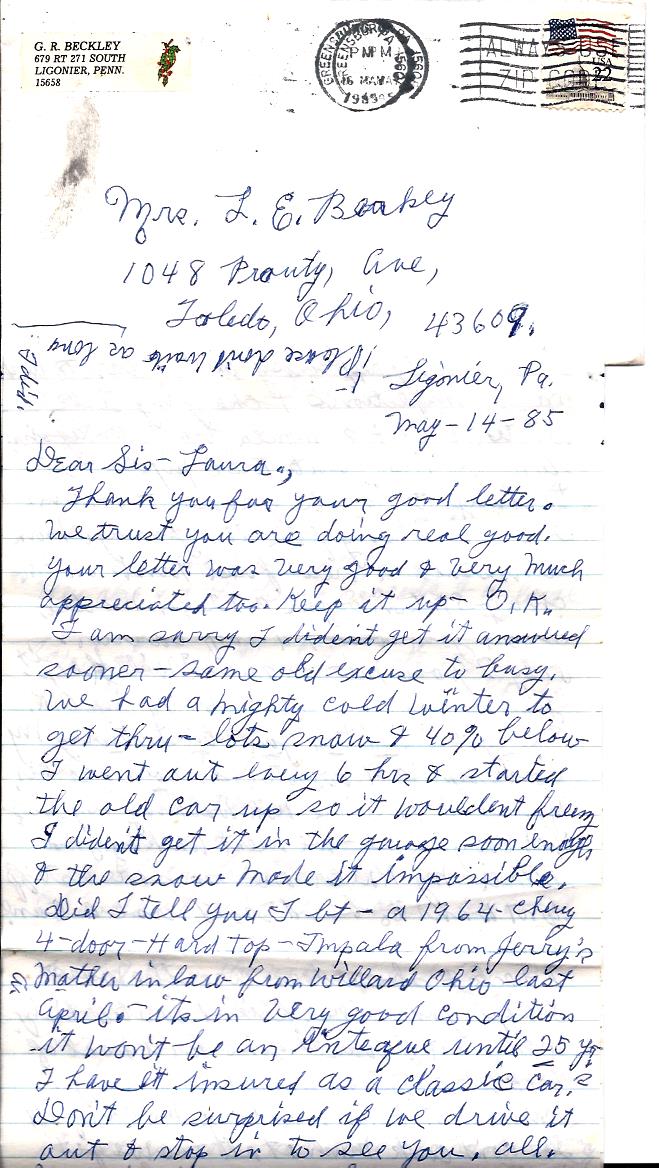 G. R. BECKLEY
679 RT 271 SOUTH
LIGONIER, PENN.
15658
GREENSBURG PA 15601
PM
16 MAY
1985
ALWAYS USE
ZIP CODE
USA
22
Mrs. L. E. Beckley
1048 Prouty, Ave,
Toledo, Ohio, 43609.
Please don't wait as long as
I did.
Ligonier, Pa.
May-14-85
Dear Sis- Laura.,
Thank you for your good letter.
We trust you are doing real good.
Your letter was very good & very much
appreciated too. Keep it up- O.K.,
I am sorry I dident get it answered
sooner-same old excuse to busy.
We had a mighty cold winter to
get thru- lots snow & 40% below
I went out every 6 hrs & started
the old car up so it wouldent freeze
I dident get it in the garage soon enough
& the snow made it impossible.
Did I tell you I bt- a 1964- Chevy
4-door-Hard top-Impala from Jerry's
Mother in law from Willard Ohio last
April.-its in very good condition
it won't be an Anteaque until 25 yrs
I have it insured as a classic car.
Don't be surprised if we drive it
out & stop in to see you, all.